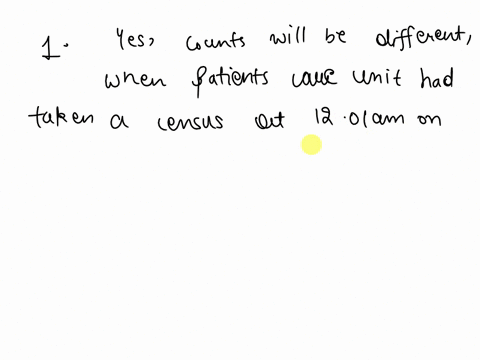 1. Yes, counts will be different,
when patients care unit had
taken a census at 12.01am on